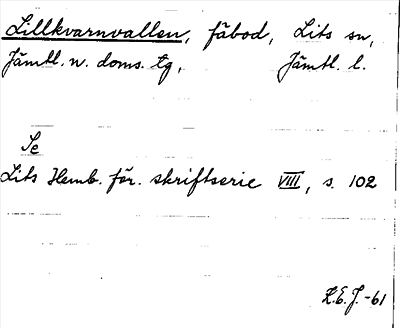 Lillkvarnvallen, fäbod, Lits sn,
Jämtl. n. doms. tg, Jämtl. l.
Se
Lits Hemb. för. skriftserie VIII, s. 102
K.E.J. -61